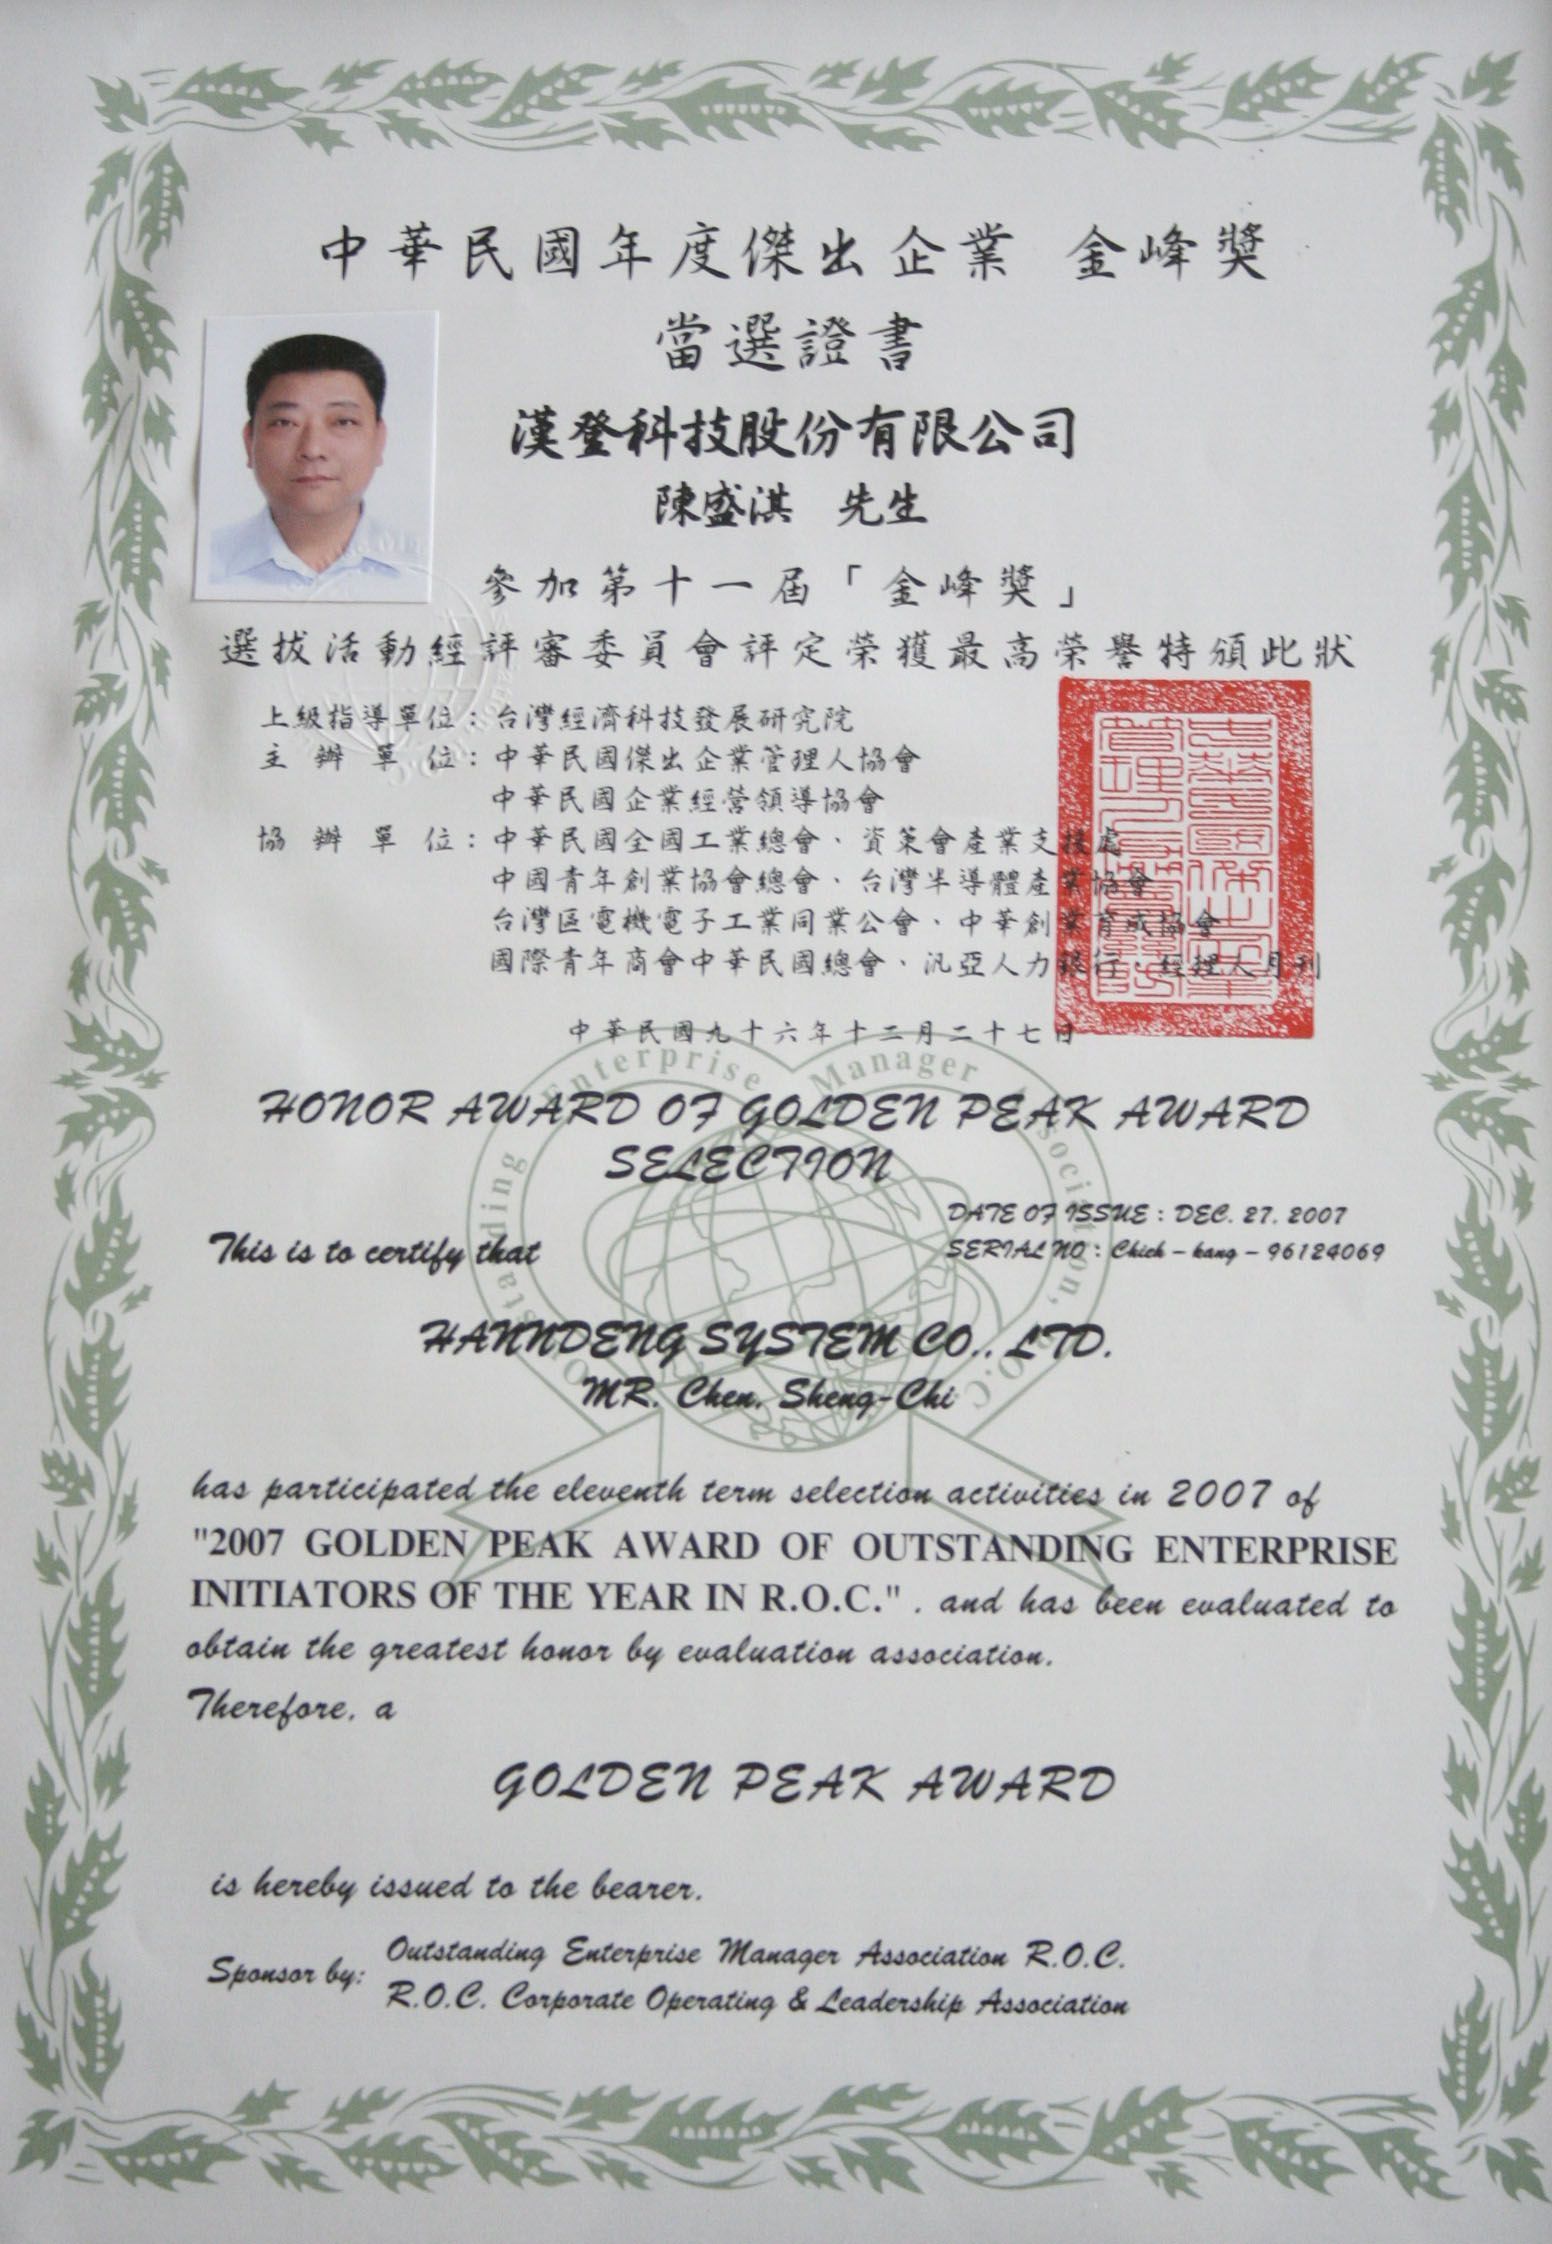 中華民國年度傑出企業 金峰獎
當選證書
漢登科技股份有限公司
陳盛淇 先生
參加第十一屆「金峰獎」
選拔活動經評審委員會評定榮獲最高榮譽特頒此狀
上級指導單位：台灣經濟科技發展研究院
主辦單位：中華民國傑出企業管理人協會
中華民國企業經營領導協會
協辦單位：中華民國全國工業總會、資策會產業支援處
中國青年創業協會總會、台灣半導體產業協會
台灣區電機電子工業同業公會、中華創業育成協會
國際青年商會中華民國總會、汎亞人力銀行、經理人月刊
中華民國九十六年十二月二十七日
Outstanding Enterprise Manager Association, R.O.C.
HONOR AWARD OF GOLDEN PEAK AWARD
SELECTION
DATE OF ISSUE : DEC. 27. 2007
This is to certify that
SERIAL NO : Chich - kang - 96124069
HANNDENG SYSTEM CO., LTD.
MR. Chen, Sheng-Chi
has participated the eleventh term selection activities in 2007 of
"2007 GOLDEN PEAK AWARD OF OUTSTANDING ENTERPRISE
INITIATORS OF THE YEAR IN R.O.C." . and has been evaluated to
obtain the greatest honor by evaluation association.
Therefore, a
GOLDEN PEAK AWARD
is hereby issued to the bearer.
Sponsor by: Outstanding Enterprise Manager Association R.O.C.
R.O.C. Corporate Operating & Leadership Association